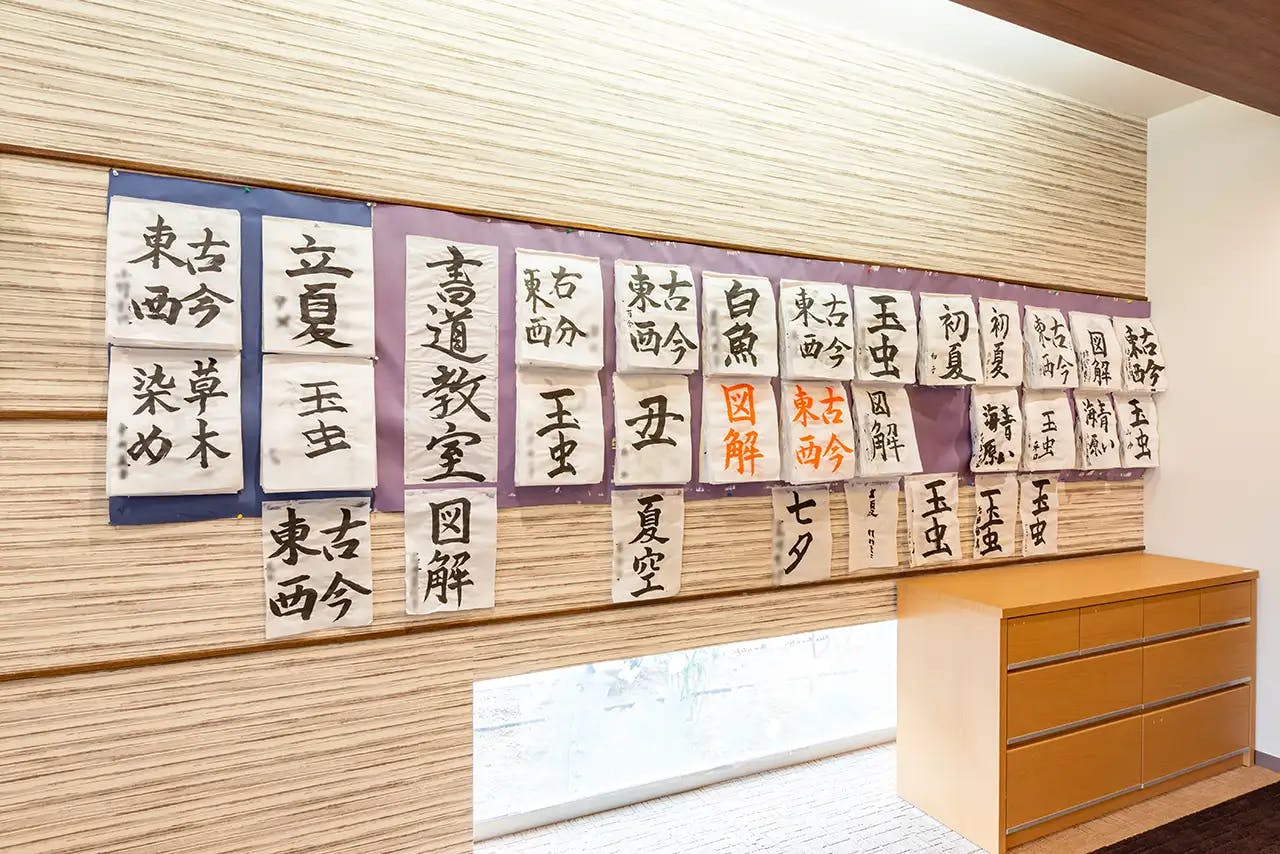 古今
東西
立夏
書道教室
右分
東西
古今
東西
白魚
古今
東西
玉虫
初夏
初夏
古今
東西
図解
古今
東西
草木
染め
玉虫
玉虫
丑
図解
古今
東西
図解
青い
海源
玉虫
青い
海源
玉虫
古今
東西
図解
夏空
七夕
夏
玉虫
玉虫
玉虫